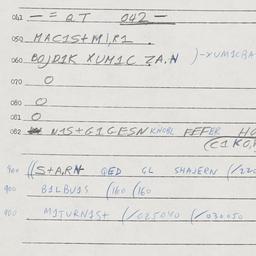 041 — = QT 042 —
050 MAC1S+M1,R1.
060 BOJD1K XUM1C ZA.N )-XUM1CBA
070 O
080 O
081 O
082 N1S+G1GESN KNOBL FEFER HO
(C1 KO,
900 ((S+A,RN QED GL SHAJERN (/220
900 B1LBU1S (160 (160
900 M1TURN1S+ (/025040 (/030050